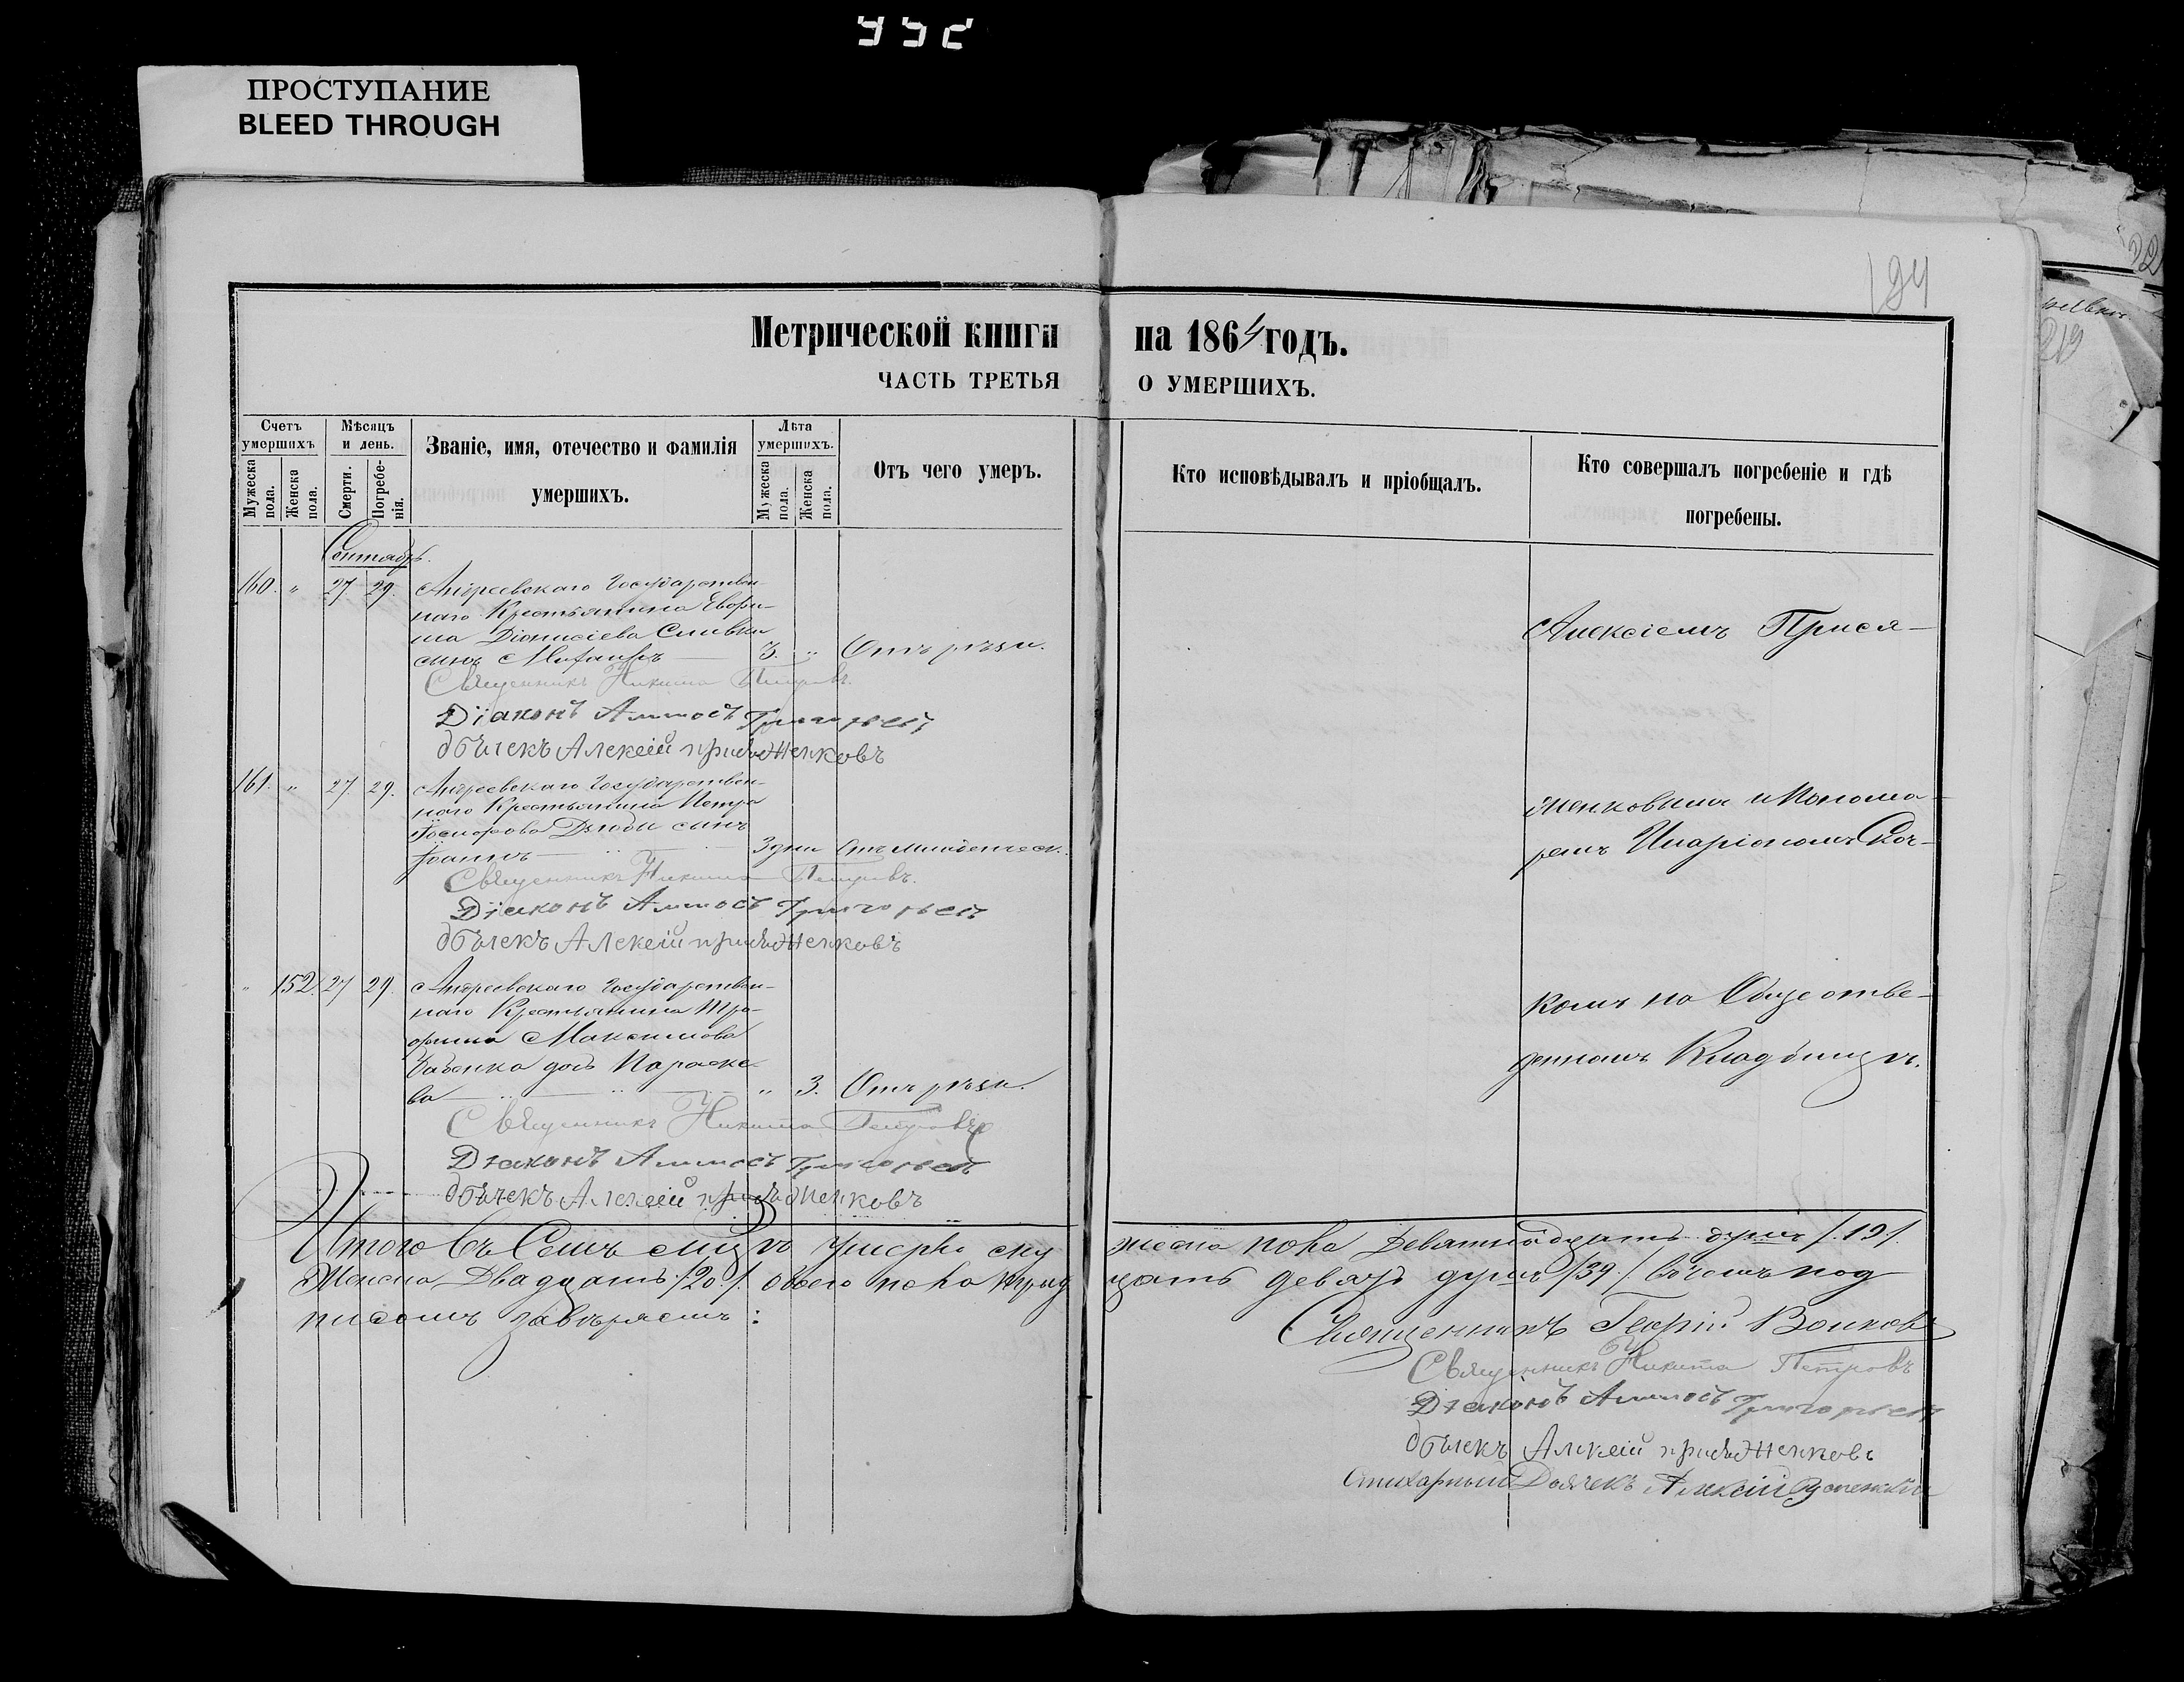 952
ПРОСТУПАНИЕ
BLEED THROUGH
194
Метрической книги на 1864 годъ.
ЧАСТЬ ТРЕТЬЯ О УМЕРШИХЪ.
Счетъ умершихъ
Мужеска пола.
Женска пола.
Мѣсяцъ и день.
Смерти.
Погребенія.
Званіе, имя, отечество и фамилія умершихъ.
Лѣта умершихъ.
Мужеска пола.
Женска пола.
Отъ чего умеръ.
Кто исповѣдывалъ и пріобщалъ.
Кто совершалъ погребеніе и гдѣ погребены.
Сентябрь.
160. " 27 29. Андреевскаго Государствен-
наго Крестьянина Евфи-
ма Діонисіева Сливки
сынъ 3. " Отъ рѣзи.
Священникъ Никита Петровъ.
Діаконъ Аммосъ Григорьевъ
дьячекъ Алексій присяженковъ
Алексіемъ Прися-
161. " 27. 29. Андреевскаго Государствен-
наго Крестьянина Петра
Дзюбы сынъ
Іоаннъ 3 дни Отъ младенческ.
Священникъ Никита Петровъ.
Діаконъ Аммосъ Григорьевъ
дьячекъ Алексій присяженковъ
женковымъ и Понома-
ремъ Иларіономъ
" 152. 27 29. Андреевскаго Государствен-
наго Крестьянина Тро-
фима Максимова
дочь Параске-
ва " 3. Отъ рѣзи.
Священникъ Никита Петровъ
Діаконъ Аммосъ Григорьевъ
дьячекъ Алексій присяженковъ
комъ на Обществе-
нномъ Кладбищѣ.
Итого въ Семъ мцѣ умерло му жеска пола девятнадцать душъ /19/.
Женска Двадцать /20/. обоего пола трид цать девять душъ /39/ въ чемъ под
писомъ завѣряемъ:
Священникъ Георгій Волковъ
Священникъ Никита Петровъ
Діаконъ Аммосъ Григорьевъ
дьячекъ Алексій присяженковъ
Стихарный Дьячекъ Алексій